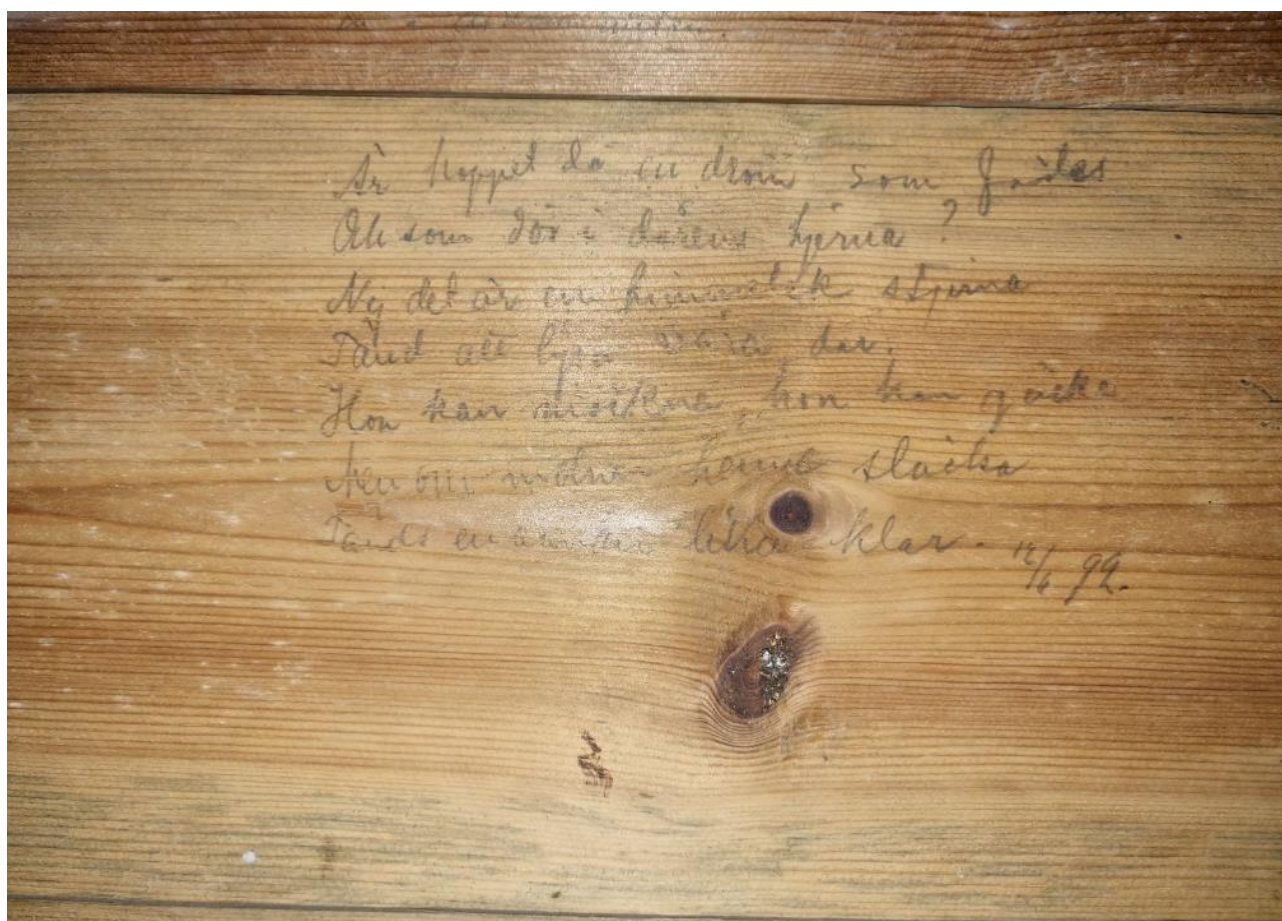 Är hoppet då en dröm som födes
Och som dör i dårens hjerna ?
Nej det är en himmelsk stjerna
Tänd att lysa våra dar.
Hon kan misskna, hon kan gäcka
Men om molnen henne släcka
Tänds en annan lika klar. 12/6 99.